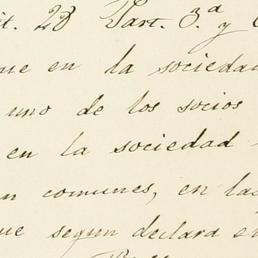 it. 23 Part. 3.ª y
ue en la sociedad
uno de los socios
en la sociedad
n comunes, en la
ue segun declara en